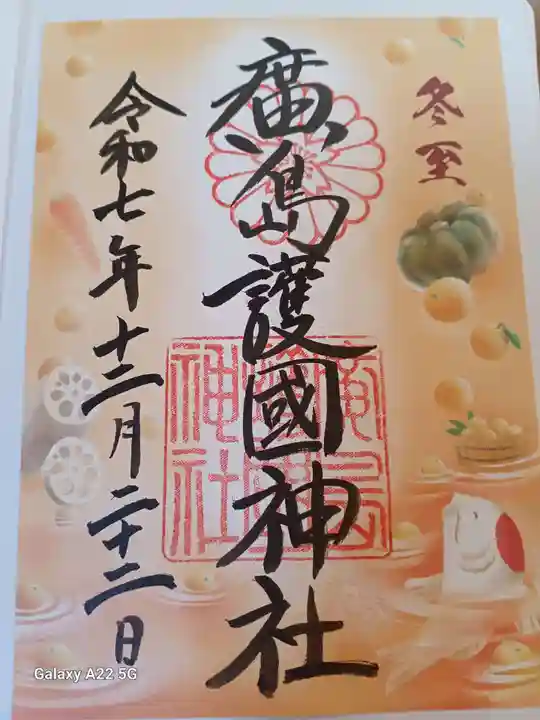 冬至
廣島護國神社
廣島護國神社
令和七年十二月二十二日
Galaxy A22 5G